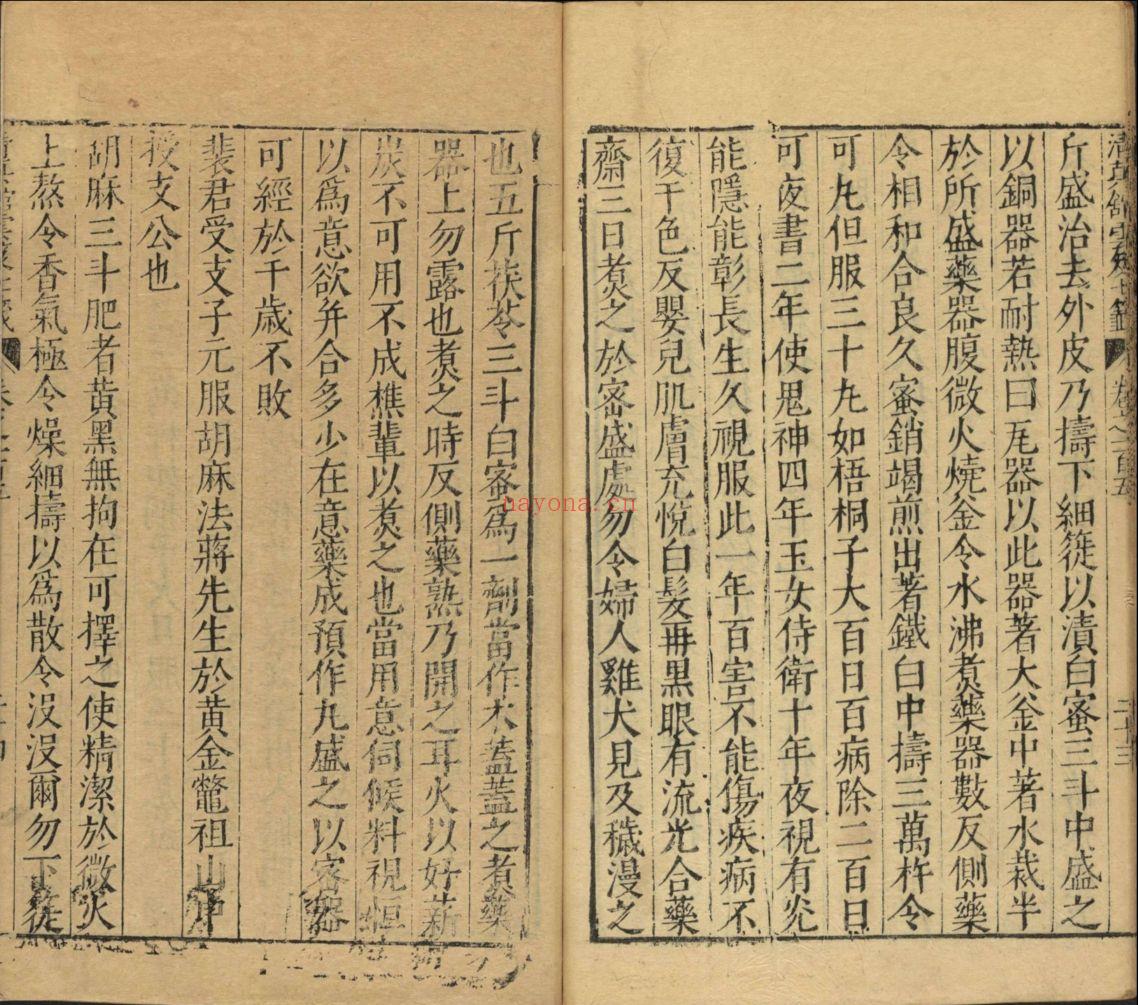 斤盛治去外皮乃擣下細簁以漬白蜜三斗中盛之
以銅器若耐熱曰瓦器以此器著大釜中著水裁半
於所盛藥器腹微火燒釜令水沸煑藥器數反側藥
令相和合良久蜜銷竭煎出著鐵臼中擣三萬杵令
可丸但服三十丸如梧桐子大百日百病除二百日
可夜書二年使鬼神四年玉女侍衛十年夜視有光
能隱能彰長生久視服此一年百害不能傷疾病不
復干色反嬰兒肌膚充悅白髮再黑眼有流光合藥
齋三日煑之於密盛處勿令婦人雞犬見及穢漫之
也五斤茯苓三斗白蜜爲一劑當作木蓋蓋之煑藥
器上勿露也煑之時反側藥熟乃開之耳火以好薪
炭不可用不成樵輩以煑之也當用意伺候料視恒
以爲意欲并合多少在意藥成預作丸盛之以密器
可經於千歲不敗
裴君受支子元服胡麻法蔣先生於黃金鼈祖山中
授支公也
胡麻三斗肥者黃黑無拘在可擇之使精潔於微火
上熬令香氣極令燥細擣以爲散令没没爾勿下簁
nayona.cn